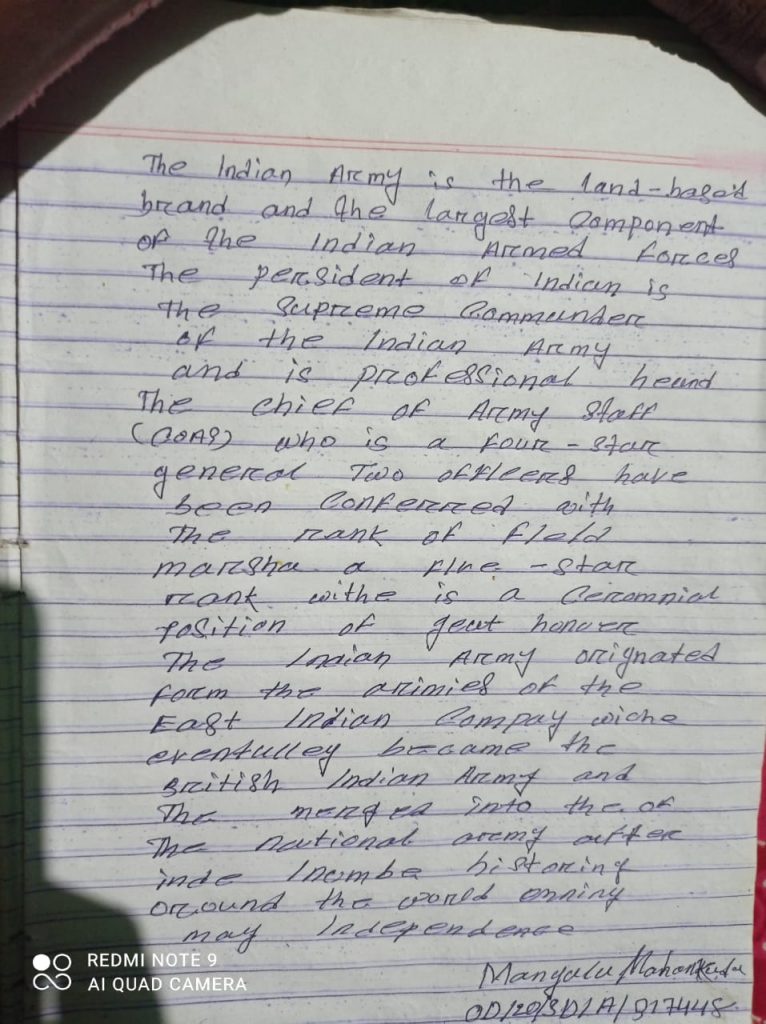 The Indian Army is the land-based
brand and the largest Component
of the Indian Armed forces
The persident of Indian is
the Supreme Commander
of the Indian Army
and is professional heand
The chief of Army Staff
(COAS) who is a four-star
general Two officers have
been Conferred with
The rank of field
marsha a five-star
rank withe is a Ceromnial
position of geat honour
The Indian Army orignated
form the arimies of the
East Indian Compay wiche
eventulley became the
British Indian Army and
The merged into the of
The national army after
inde
around the world
may Independence
REDMI NOTE 9
AI QUAD CAMERA